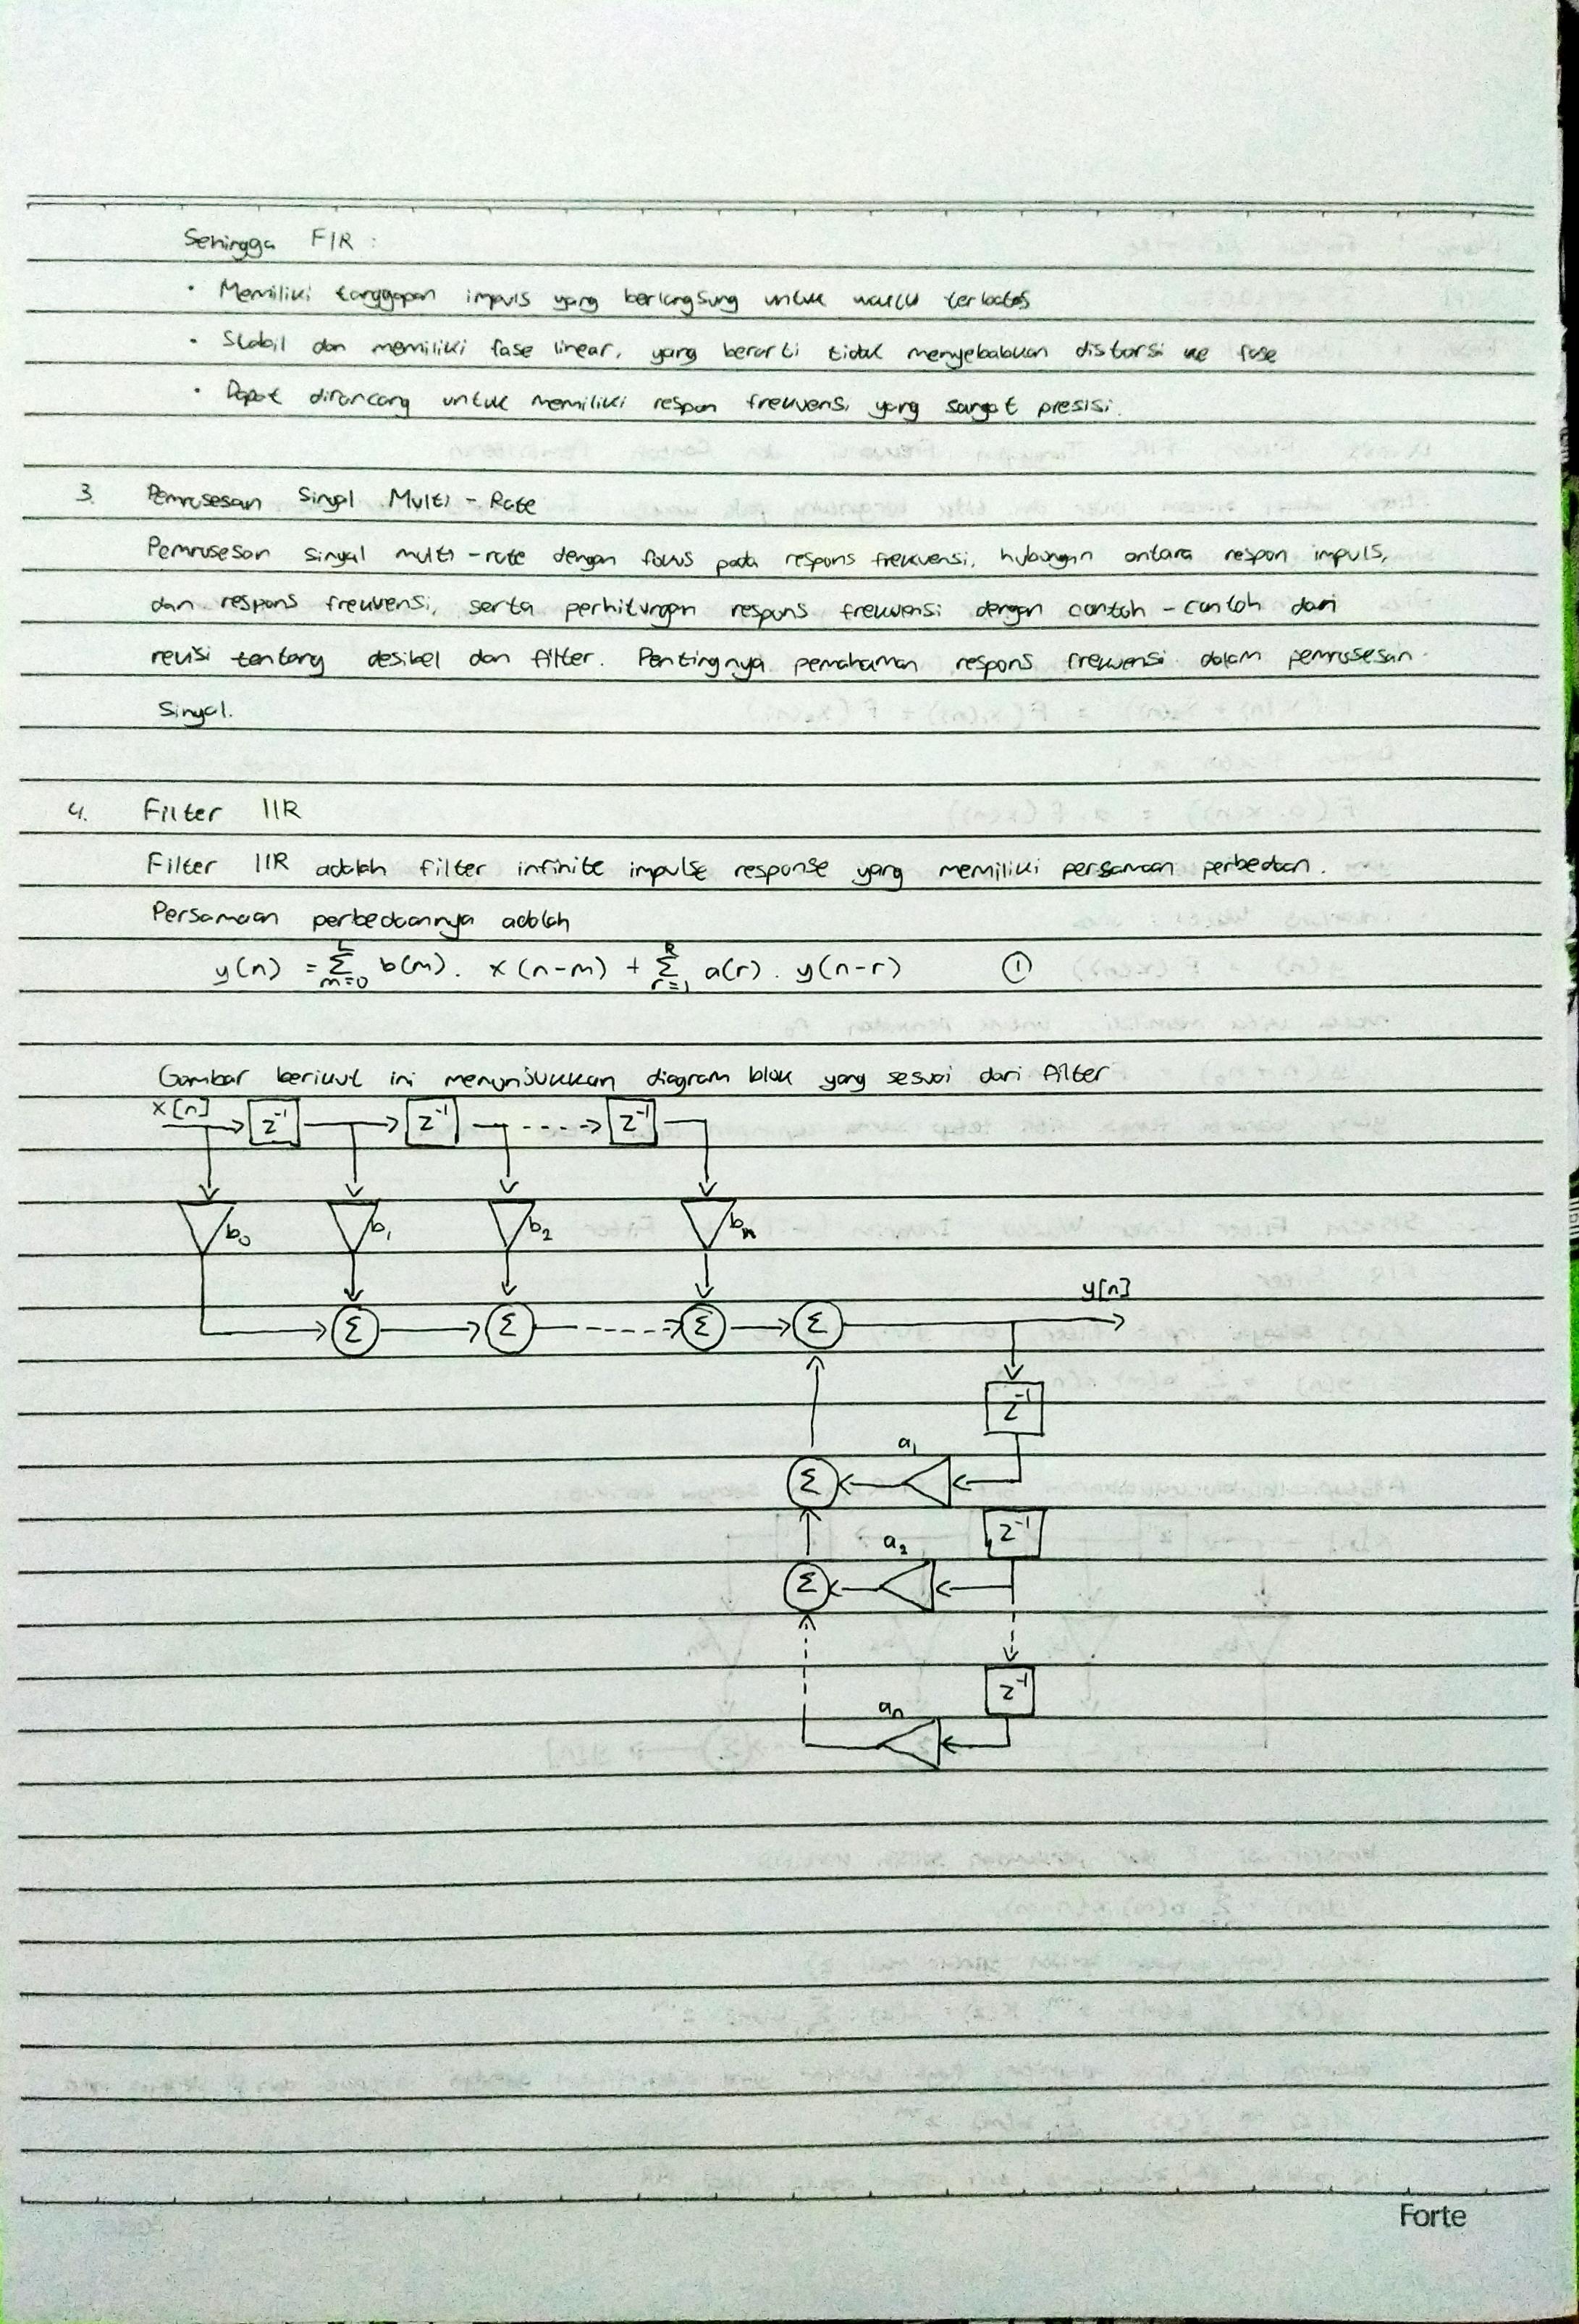 Sehingga FIR :
• Memiliki tanggapan impuls yang berlangsung untuk waktu terbatas
• Stabil dan memiliki fase linear, yang berarti tidak menyebabkan distorsi ke fase
• Dapat dirancang untuk memiliki respon frekuensi yang sangat presisi.
3. Pemrosesan Sinyal Multi - Rate
Pemrosesan sinyal multi - rate dengan fokus pada respons frekuensi, hubungan antara respon impuls,
dan respons frekuensi, serta perhitungan respons frekuensi dengan contoh - contoh dari
revisi tentang desibel dan filter. Pentingnya pemahaman respons frekuensi dalam pemrosesan
Sinyal.
4. Filter IIR
Filter IIR adalah filter infinite impulse response yang memiliki persamaan perbedaan.
Persamaan perbedaannya adalah
y(n) = Σ_{m=0}^{L} b(m) . x(n-m) + Σ_{r=1}^{R} a(r) . y(n-r) ①
Gambar berikut ini menunjukkan diagram blok yang sesuai dari filter
x[n] z⁻¹ z⁻¹ z⁻¹
b₀ b₁ b₂ bₘ
y[n]
Σ Σ Σ Σ
z⁻¹
a₁
Σ
z⁻¹
a₂
Σ
z⁻¹
aₙ
Forte